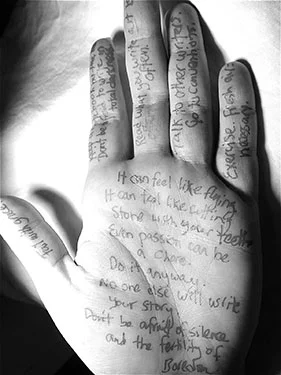 Don't be afraid to
Read what you write
often.
Talk to other writers.
Go to conventions.
Exercise. Fresh air
necessary.
It can feel like flying
It can feel like cutting
stone with your teeth
Even passion can be
a chore.
Do it anyway.
No one else will write
your story
Don't be afraid of silence
and the fertility of
Boredom